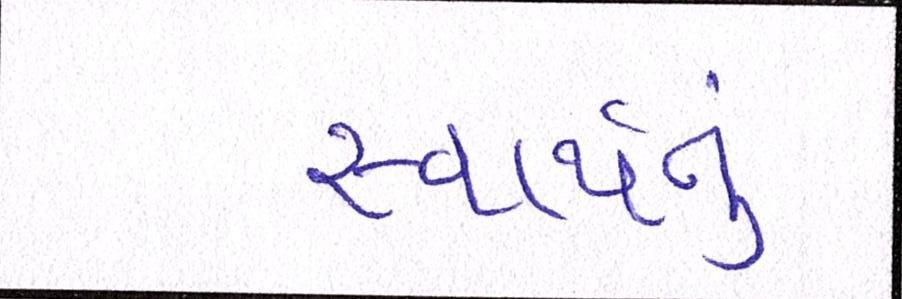 સ્વાર્થનું